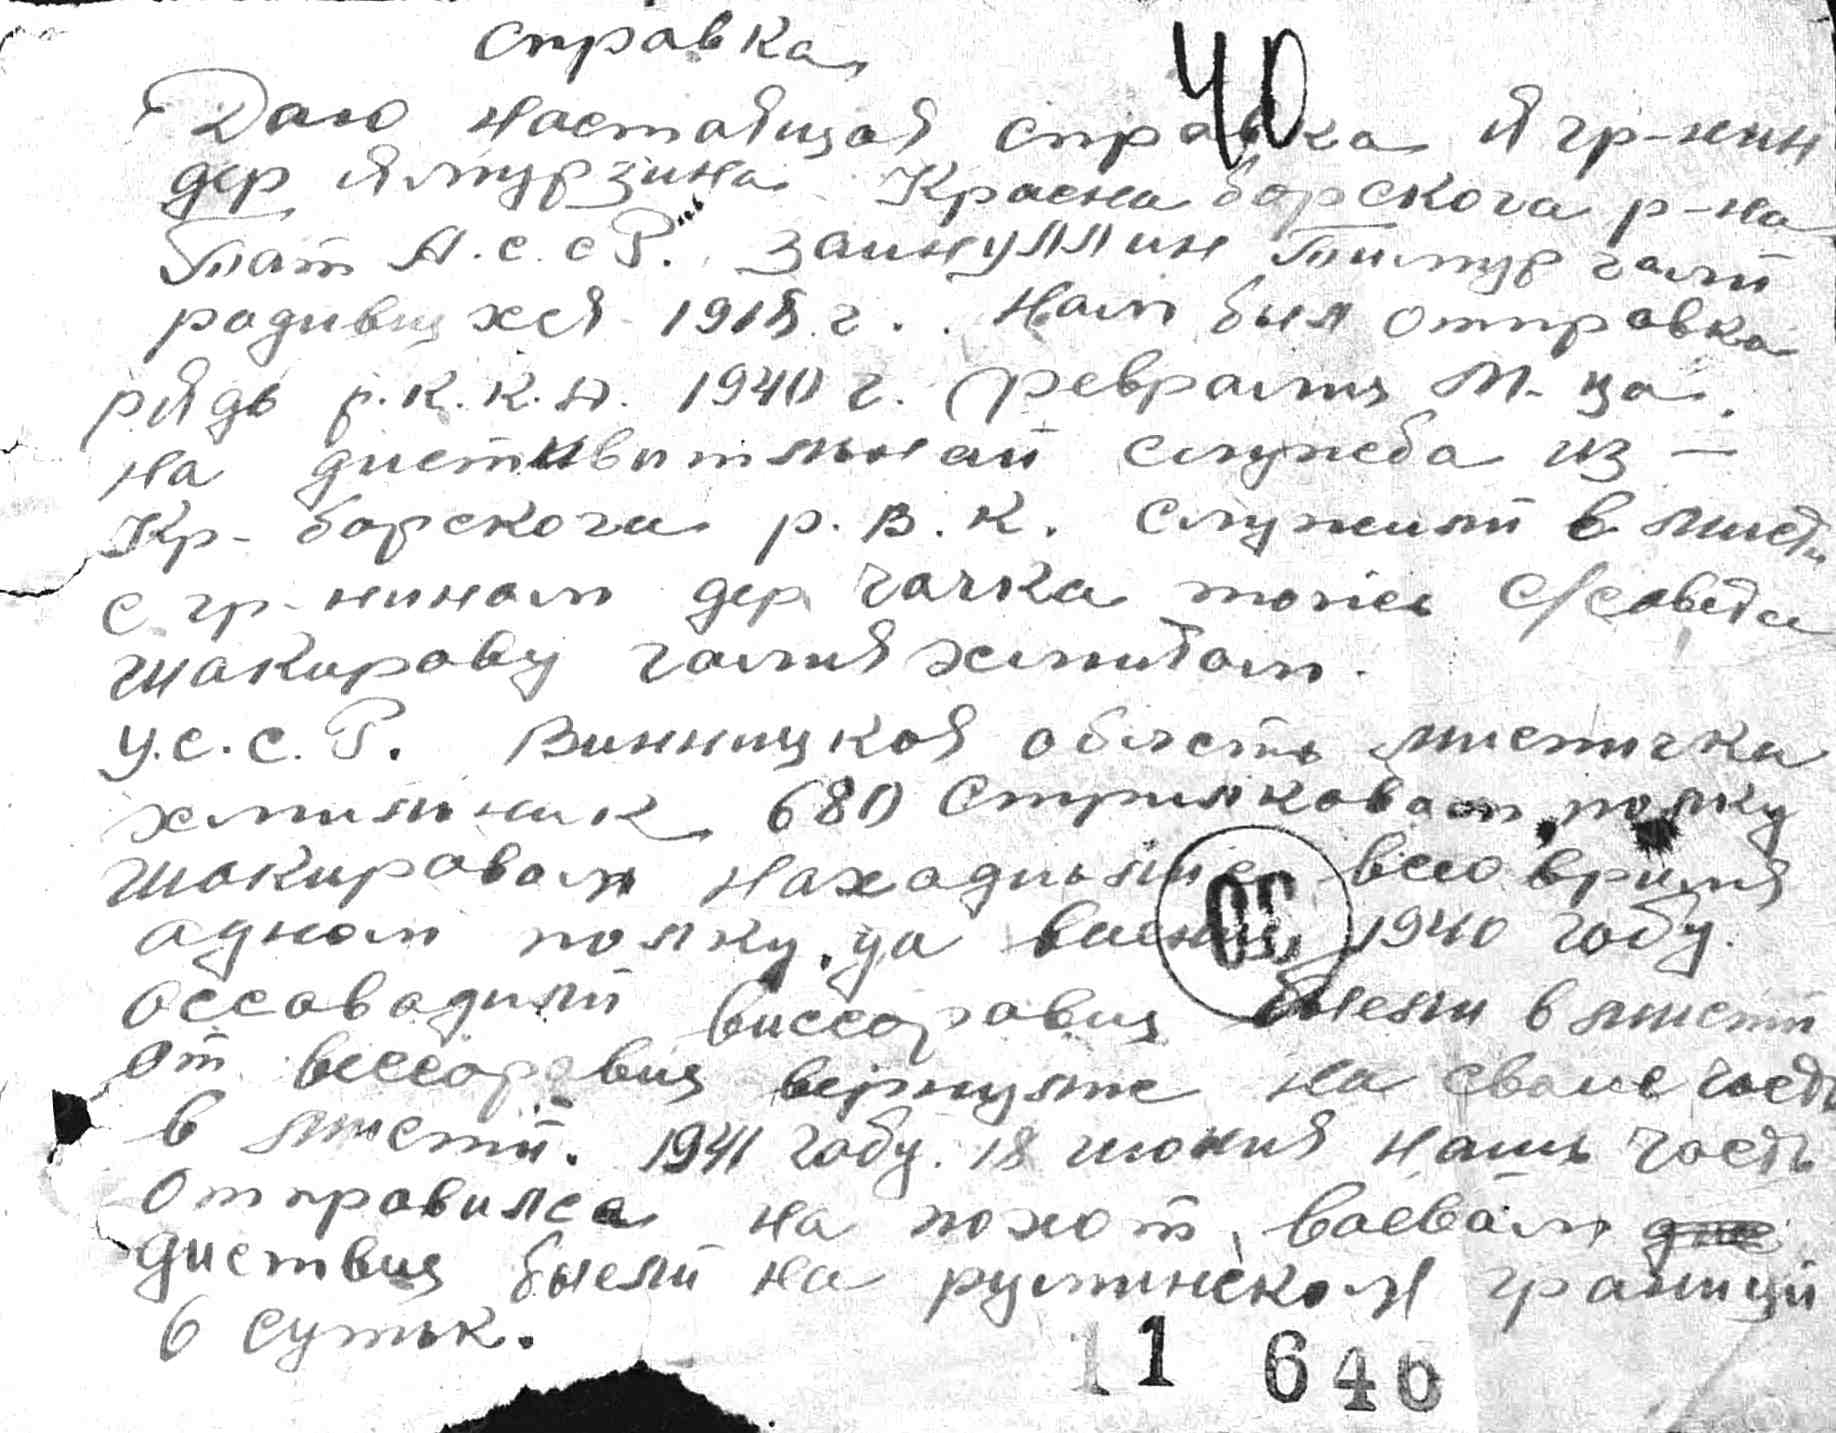 справка
40
Даю настаящая справка Я гр-нин
дер Ямурзина Краснаборскога р-на
Тат А.С.С.Р. Зайнуллин Тимургали
радившхся 1918 г. Нам был отправка
рядь р.К.К.А. 1940 г. февраля м-ца.
на диствитильнай служеба из —
Кр-борскога р.в.к. служили в мисти
с гр-нинам дер. с/совета
шакираву
У.С.С.Р. Винницкоя область мистичка
хмильник 680 стрилковам полку
шакировам находилис всю время
аднам полку да 1940 году.
30
оссавадили биссоравия были в мисти
от бессоравия вернулис на сваие часть
в мисти. 1941 году. 18 июния нашь часть
отправилса на похот, баевам
диствия были на руминскам граници
6 сутык.
11 646